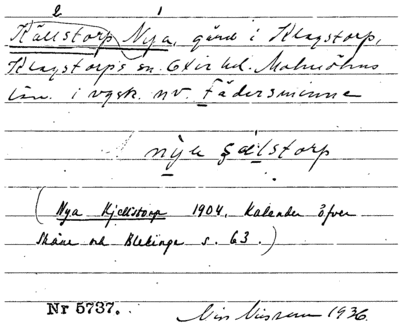 2 1
Källstorp Nya, gård i Klagstorp,
Klagstorps sn. Oxie hd. Malmöhus
län. i vgsk. nv. Fädersminne
nya çälstorp
(Nya Kjellstorp 1904. Kalender öfver
Skåne och Blekinge s. 63.)
Nr 5737. 1936